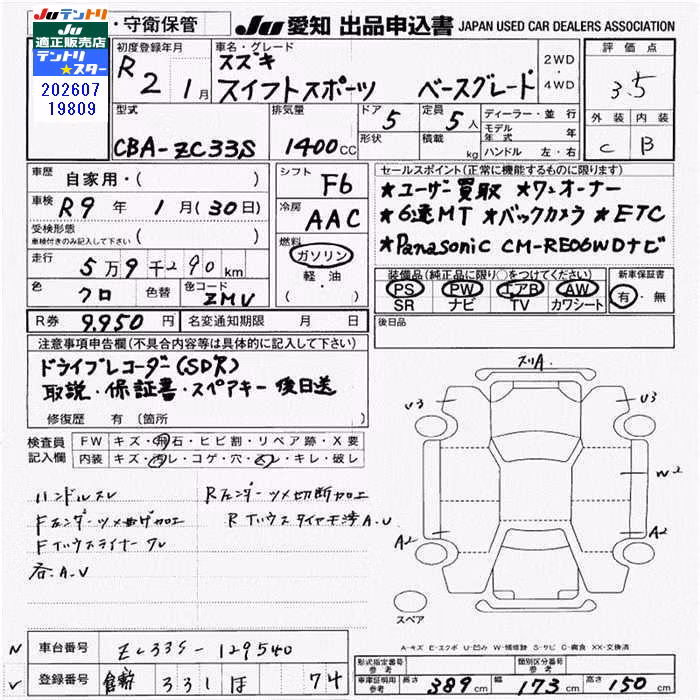 JUテントリ
JU
適正販売店
テントリ
★スター
202607
19809
・守衛保管
JU 愛知 出品申込書 JAPAN USED CAR DEALERS ASSOCIATION
初度登録年月
R 2 1月
車名・グレード
スズキ
スイフトスポーツ ベースグレード
2WD
・
4WD
評価点
3.5
外装 内装
C B
型式
CBA-ZC33S
排気量
1400cc
ドア 5
形状
定員 5人
積載 kg
ディーラー・並行
モデル年式 年
ハンドル 左・右
車歴 自家用・( )
車検 R9年 1月(30日)
受検形態
車検付きのみ記入して下さい ( )
走行 5万9千290km
色 クロ 色替 色コード ZMV
R券 9.950円 名変通知期限 月 日
シフト F6
冷房 AAC
燃料
ガソリン
軽・油
( )
セールスポイント(正常に機能するものに限ります)
★ユーザー買取 ★ワンオーナー
★6速MT ★バックカメラ ★ETC
★Panasonic CM-RE06WDナビ
装備品(純正品に限り○をつけてください)
PS PW エアB AW
SR ナビ TV カワシート
新車保証書
有・無
後日品
注意事項申告欄(不具合内容等は具体的に記入して下さい)
ドライブレコーダー(SDR)
取説・保証書・スペアキー 後日送
修復歴 有(箇所 )
検査員記入欄
FW キズ・飛石・ヒビ割・リペア跡・X要
内装 キズ・汚レ・コゲ・穴・スレ・キレ・破レ
ハンドルスレ
Rフェンダーツメ切断加工
Fフェンダーツメ曲ゲ加工
RTハウス
FTハウスライナーワレ
各A.U
ズリA.
U3 U3
W2
A2 A2
スペア
A-キズ E-エクボ U-凹み W-補修跡 S-サビ C-腐食 XX-交換済
N 車台番号 ZC33S-129540
登録番号 倉敷 331 ほ 74
形式指定番号
参考
類別区分番号
参考
車庫証明用
参考
長さ 389cm 幅 173cm 高さ 150cm